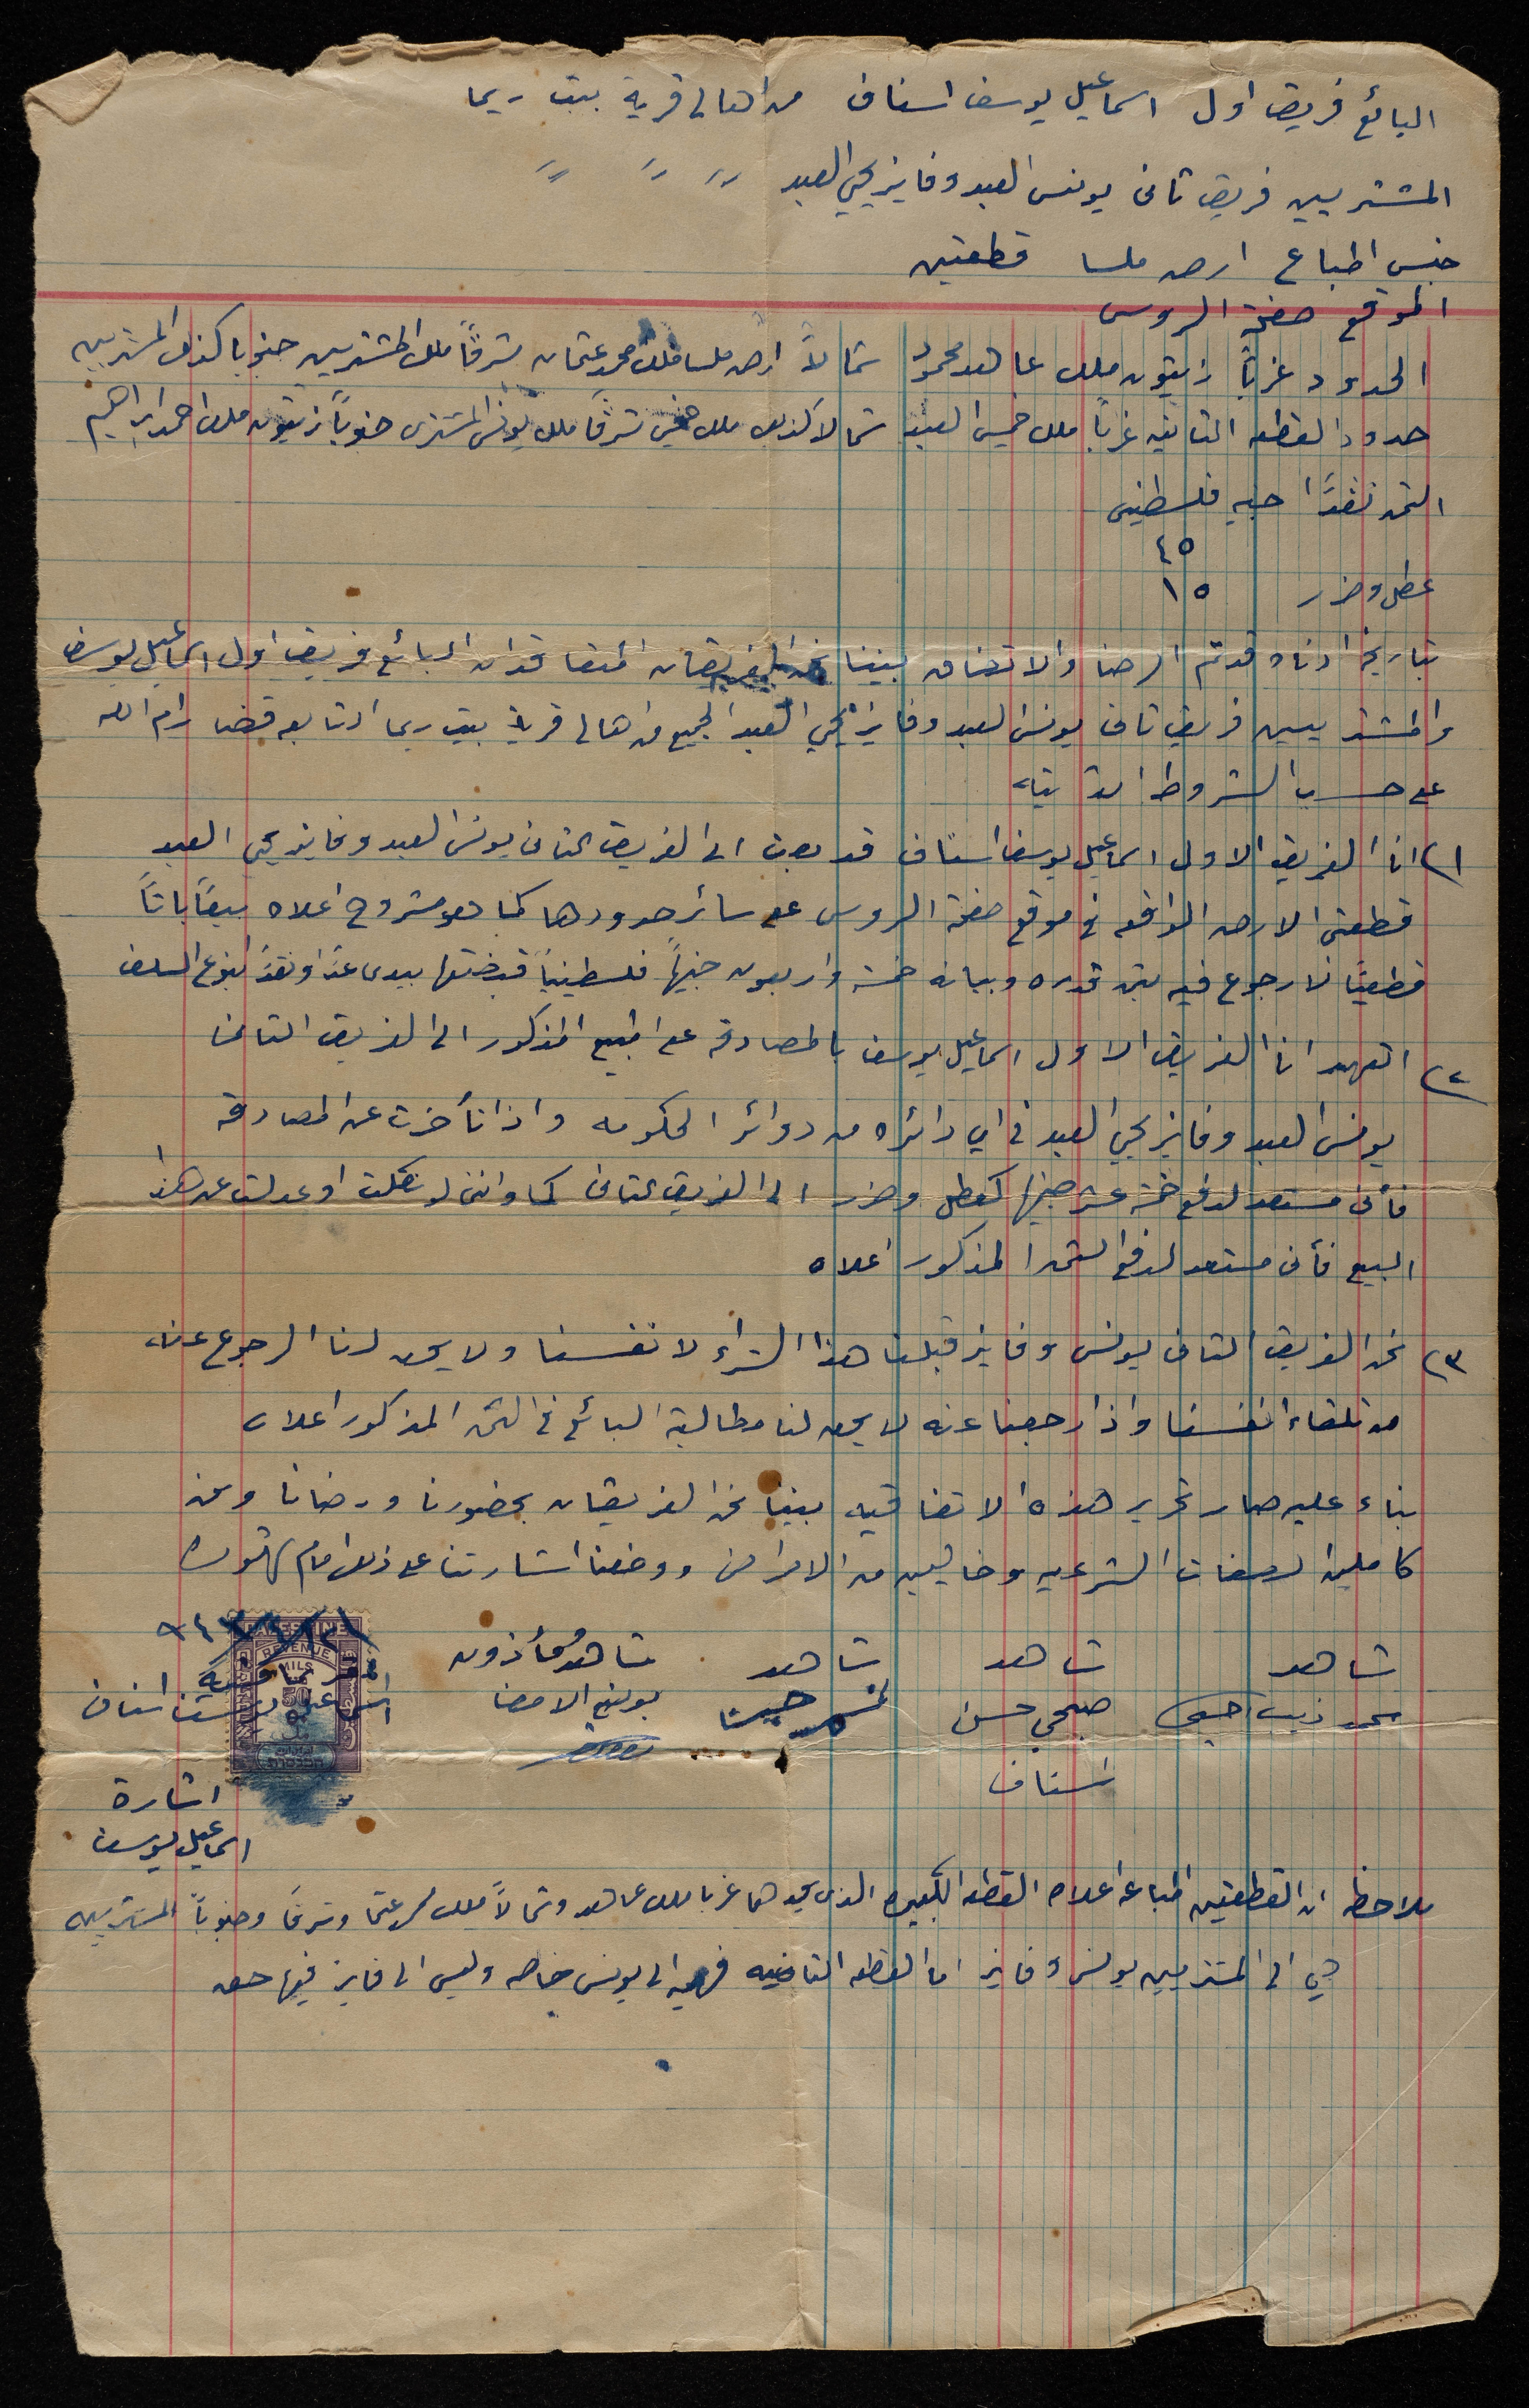 البائع فريق اول اسماعيل يوسف اسناف من اهالي قرية بيت ريما
المشتريين فريق ثاني يونس العبد وفايز يحيى العبد " " "
جنس المباع ارض ملسا قطعتين
الموقع صفحة الروس
الحدود غرباً زيتون ملك عاهد محمود شمالاً ارض ملسا ملك محمد عثمان شرقاً ملك المشتريين جنوبا كذلك المشتريين
حدود القطعه الثانيه غرباً ملك خميس العبد شمالا كذلك ملك خميس شرقاً ملك يونس المشتري جنوباً زيتون ملك احمد ابراهيم
الثمن نقداً جنيه فلسطيني
٤٥
عطل وضرر ١٥
بتاريخ ادناه قد تم الرضا والاتفاق بيننا نحن الفريقان المتعاقدان البائع فريق اول اسماعيل يوسف
والمشتريين فريق ثاني يونس العبد وفايز يحيى العبد الجميع من اهالي قرية بيت ريما التابعه قضا رام الله
على حسب الشروط الاتيه
١) انا الفريق الاول اسماعيل يوسف اسناف قد بعت الى الفريق الثاني يونس العبد وفايز يحيى العبد
قطعتي الارض الواقعه في موقع صفحة الروس على سائر حدودها كما هو مشروح اعلاه بيعاً باتاً
قطعياً لا رجوع فيه بثمن قدره وبيانه خمسة واربعون جنيهاً فلسطينياً قبضتها بيدي عداً ونقداً بنوع السلف
٢) اتعهد انا الفريق الاول اسماعيل يوسف بالمصادقه على المبيع المذكور الى الفريق الثاني
يونس العبد وفايز يحيى العبد في اي دائره من دوائر الحكومه واذا تأخرت عن المصادقه
فأني مستعد لدفع خمسة عشر جنيها كعطل وضرر الى الفريق الثاني كما وانني لو نكلت او عدلت عن هذا
البيع فأني مستعد لدفع الثمن المذكور اعلاه
٣) نحن الفريق الثاني يونس وفايز قبلنا هذا الشراء لانفسنا ولا يحق لنا الرجوع عنه
من تلقاء انفسنا واذا رجعنا عنه لا يحق لنا مطالبة البائع في الثمن المذكور اعلاه
بناء عليه صار تحرير هذه الاتفاقيه بيننا نحن الفريقان بحضورنا ورضانا ونحن
كاملين الصفات الشرعيه وخاليين من الامراض ووضعنا اشارتنا على ذلك امام شهوده
شاهد شاهد شاهد شاهد ومأذون
محمد ذيب صبحي حسن بوضع الامضا
اسناف
اسماعيل يوسف اسناف
PALESTINE
REVENUE
MILS
50
اشارة
اسماعيل يوسف
ملاحظه ان القطعتين المباعه اعلاه القطعه الكبيره الذي يحدهما غربا ملك عاهد وشمالاً ملك محمد عثمان وشرقاً وجنوباً المشتريين
هي الى المشتريين يونس وفايز اما القطعه الثانيه فهي الى يونس خاصه وليس الى فايز فيها حق